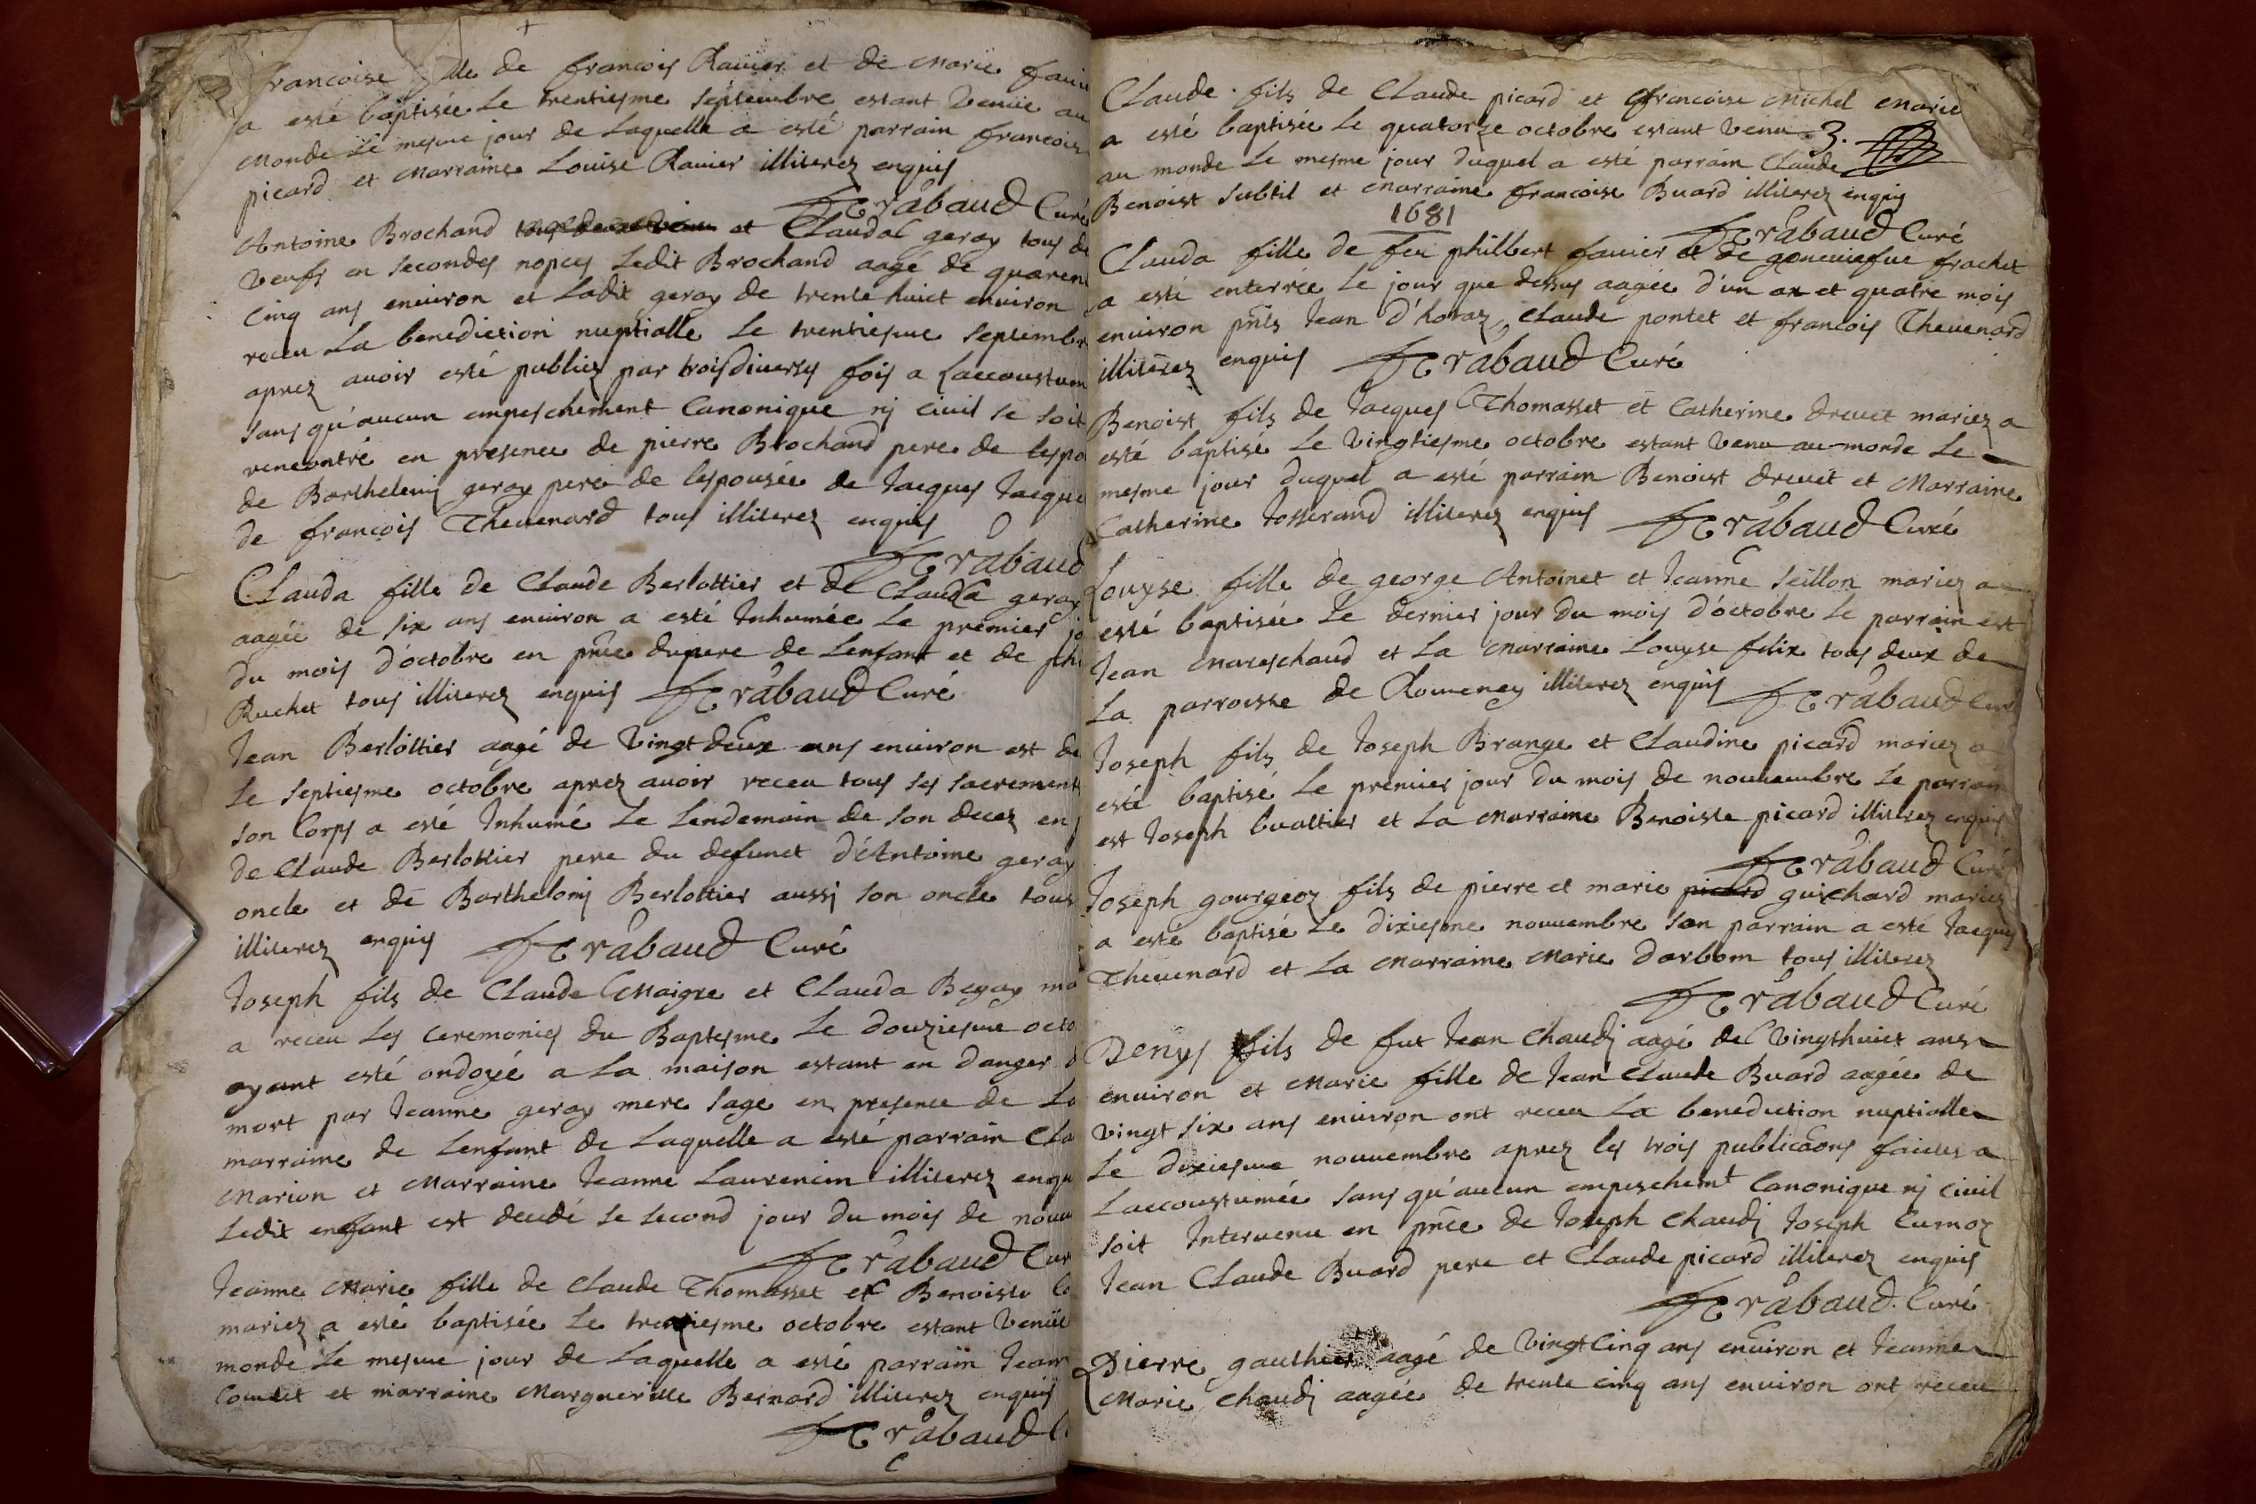 francoise fille de francois Ravier et de Marie favie
a esté baptisée Le trentiesme septembre estant Venüe au
Monde Le mesme jour de Laquelle a esté parrain francois
picard et Marraine Louise Ravier illiterez enquis
Trabaud Curé
Antoine Brochand et Clauda geray tous de
Veufs en secondes nopces Ledit Brochand aagé de quaren
Cinq ans enuiron et Ladit geray de trente huict enuiron
receu La benediction nuptialle Le trentiesme septembr
aprez auoir esté publiez par trois diuerses fois a Laccoustum
sans qu'aucun empeschement Canonique nj Ciuil se soit
rencontré en presence de pierre Brochand pere de lespo
de Barthelemj geray pere de lespousée de Jacques Jacque
de francois Theuenard tous illiterez enquis
Trabaud
Clauda fille de Claude Berlottier et de Clauda geray
aagée de six ans enuiron a esté Inhumée Le premier jo
du mois d'octobre en pnce dupere de Lenfant et de phi
Ruchet tous illiterez enquis Trabaud Curé
Jean Berlottier aagé de Vingt deux ans enuiron est de
Le septiesme octobre aprez auoir receu tous ses sacrements
son Corps a esté Inhumé Le Lendemain de son decez en
de Claude Berlottier pere du defunct d'Antoine geray
oncle et de Barthelomj Berlottier aussj son oncle tous
illiterez enquis Trabaud Curé
Joseph fils de Claude Maigre et Clauda Begay ma
a receu Les Ceremonies du Baptesme Le douziesme octo
ayant esté ondoyé a La maison estant en danger d
mort par Jeanne geray mere sage en presence de La
marraine de Lenfant de Laquelle a esté parrain Cla
Marion et Marraine Jeanne Laurencin illiterez enqu
Ledit enfant est decedé le second jour du mois de nouu
Trabaud Cur
Jeanne Marie fille de Claude Thomasset et Benoiste Co
mariez a esté baptisée Le octobre estant Venüe
monde Le mesme jour de Laquelle a esté parrain Jean
Comtet et marraine Marguerite Bernard illiterez enquis
Trabaud C
Claude fils de Claude picard et francoise Michel Marie
a esté baptisée Le quatorze octobre estant Venu 3.
au monde Le mesme jour duquel a esté parrain Claude
Benoist subtil et Marraine francoise Buard illiterez enquis
1681
Trabaud Curé
Clauda fille de feu philbert fauier et de geneuiefue frachet
a esté enterrée Le jour que dessus aagée d'un an et quatre mois
enuiron pnts Jean d'horaz, Claude pontet et francois Theuenard
illiterez enquis Trabaud Curé
Benoist fils de Jacques Thomasset et Catherine dreuet mariez a
esté baptisé Le Vingtiesme octobre estant Venu au monde Le
mesme jour duquel a esté parrain Benoist dreuet et Marraine
Catherine Josserand illiterez enquis Trabaud Curé
Louyse fille de george Antoinet et Jeanne seillon mariez a
esté baptisée Le dernier jour du mois d'octobre Le parrain est
Jean Mareschaud et La Marraine Louyse felix tous deux de
La parroisse de Romeney illiterez enquis Trabaud Curé
Joseph fils de Joseph Brange et Claudine picard mariez a
esté baptisé Le premier jour du mois de nouuembre Le parrain
est Joseph buattier et La Marraine Benoiste picard illiterez enquis
Trabaud Curé
Joseph gourgeoz fils de pierre et marie picard guichard mariez
a esté baptisé Le dixiesme nouuembre son parrain a esté Jacques
Theuenard et La Marraine Marie darbom tous illiterez
Trabaud Curé
Denys fils de fut Jean Chaudj aagé de Vingthuict ans
enuiron et Marie fille de Jean Claude Buard aagée de
Vingt six ans enuiron ont receu La benediction nuptialle
Le dixiesme nouuembre aprez les trois publicaons faictes a
Laccoustumée sans qu'aucun empeschemt Canonique nj Ciuil
soit Interuenu en pnce de Joseph Chaudj Joseph Curnoz
Jean Claude Buard pere et Claude picard illiterez enquis
Trabaud Curé
Pierre gauthier aagé de Vingt Cinq ans enuiron et Jeanne
Marie Chaudj aagée de trente Cinq ans enuiron ont receu